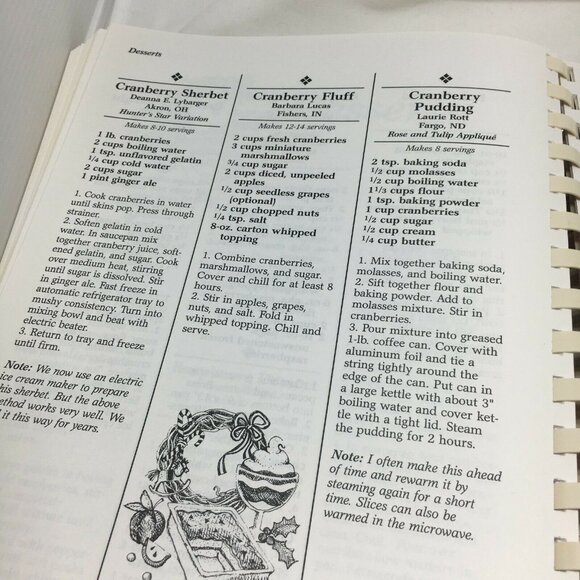 Desserts
Cranberry Sherbet
Deanna E. Lybarger
Akron, OH
Hunter's Star Variation
Makes 8-10 servings
1 lb. cranberries
2 cups boiling water
1 tsp. unflavored gelatin
1/4 cup cold water
2 cups sugar
1 pint ginger ale
1. Cook cranberries in water
until skins pop. Press through
strainer.
2. Soften gelatin in cold
water. In saucepan mix
together cranberry juice, soft-
ened gelatin, and sugar. Cook
over medium heat, stirring
until sugar is dissolved. Stir
in ginger ale. Fast freeze in
automatic refrigerator tray to
mushy consistency. Turn into
mixing bowl and beat with
electric beater.
3. Return to tray and freeze
until firm.
Note: We now use an electric
ice cream maker to prepare
this sherbet. But the above
method works very well. We
it this way for years.
Cranberry Fluff
Barbara Lucas
Fishers, IN
Makes 12-14 servings
2 cups fresh cranberries
3 cups miniature
marshmallows
3/4 cup sugar
2 cups diced, unpeeled
apples
1/2 cup seedless grapes
(optional)
1/2 cup chopped nuts
1/4 tsp. salt
8-oz. carton whipped
topping
1. Combine cranberries,
marshmallows, and sugar.
Cover and chill for at least 8
hours.
2. Stir in apples, grapes,
nuts, and salt. Fold in
whipped topping. Chill and
serve.
Cranberry
Pudding
Laurie Rott
Fargo, ND
Rose and Tulip Appliqué
Makes 8 servings
2 tsp. baking soda
1/2 cup molasses
1/2 cup boiling water
1 1/3 cups flour
1 tsp. baking powder
1 cup cranberries
1/2 cup sugar
1/2 cup cream
1/4 cup butter
1. Mix together baking soda,
molasses, and boiling water.
2. Sift together flour and
baking powder. Add to
molasses mixture. Stir in
cranberries.
3. Pour mixture into greased
1-lb. coffee can. Cover with
aluminum foil and tie a
string tightly around the
edge of the can. Put can in
a large kettle with about 3"
boiling water and cover ket-
tle with a tight lid. Steam
the pudding for 2 hours.
Note: I often make this ahead
of time and rewarm it by
steaming again for a short
time. Slices can also be
warmed in the microwave.